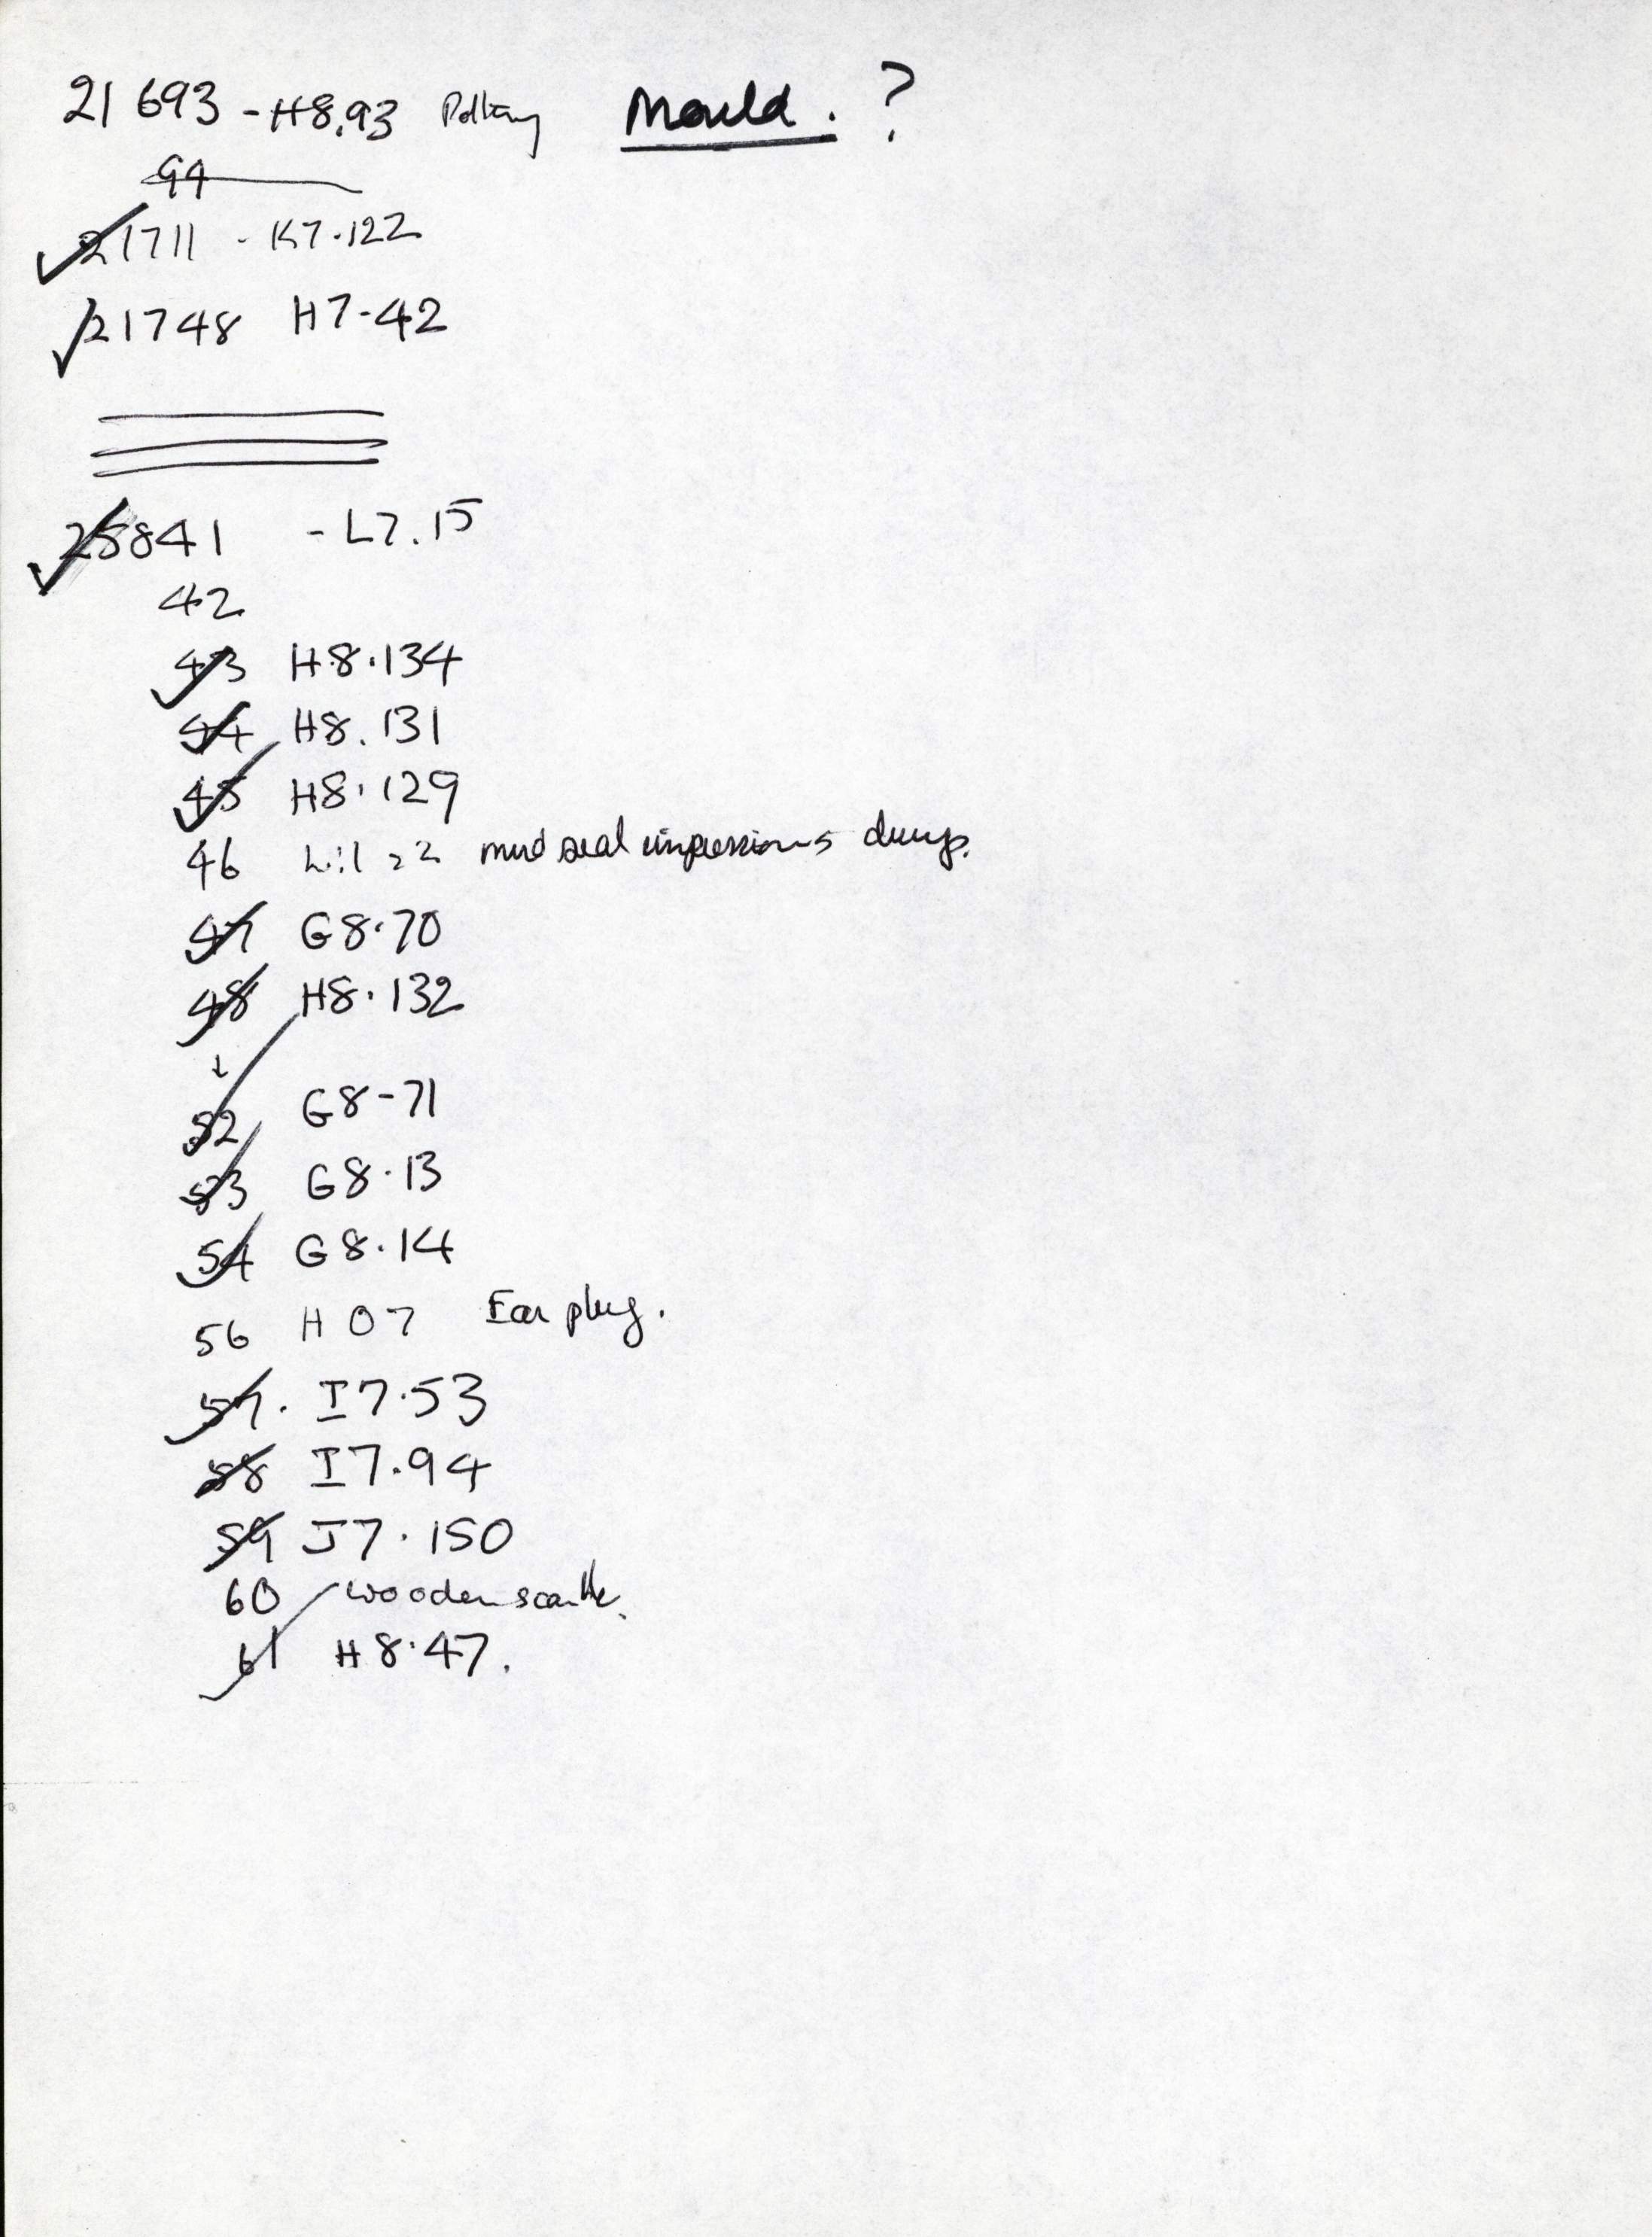 21693 - H8.93 Pottery Mould. ?
94
21711 - K7.122
21748 H7-42
25841 - L7.15
42
43 H8.134
44 H8.131
45 H8.129
46 mud seal impressions dump.
47 G8.70
48 H8.132
↓
52 G8-71
53 G8.13
54 G8.14
56 H07 Ear plug.
57. I7.53
58 I7.94
59 J7.150
60 wooden
61 H8.47.